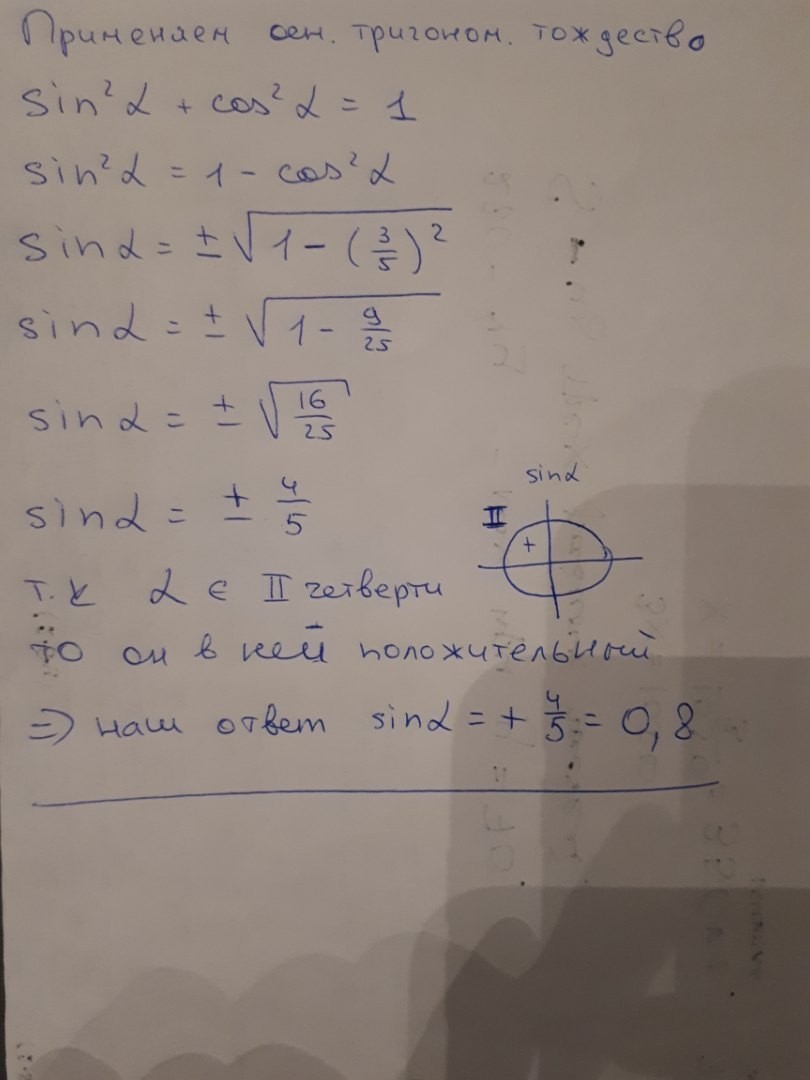 Применяем осн. тригоном. тождество
sin²α + cos²α = 1
sin²α = 1 - cos²α
sinα = ±√(1 - (3/5)²)
sinα = ±√(1 - 9/25)
sinα = ±√(16/25)
sinα = ± 4/5
sinα
II
+
т.к α ∈ II четверти
то он в ней положительный
=> наш ответ sinα = + 4/5 = 0,8